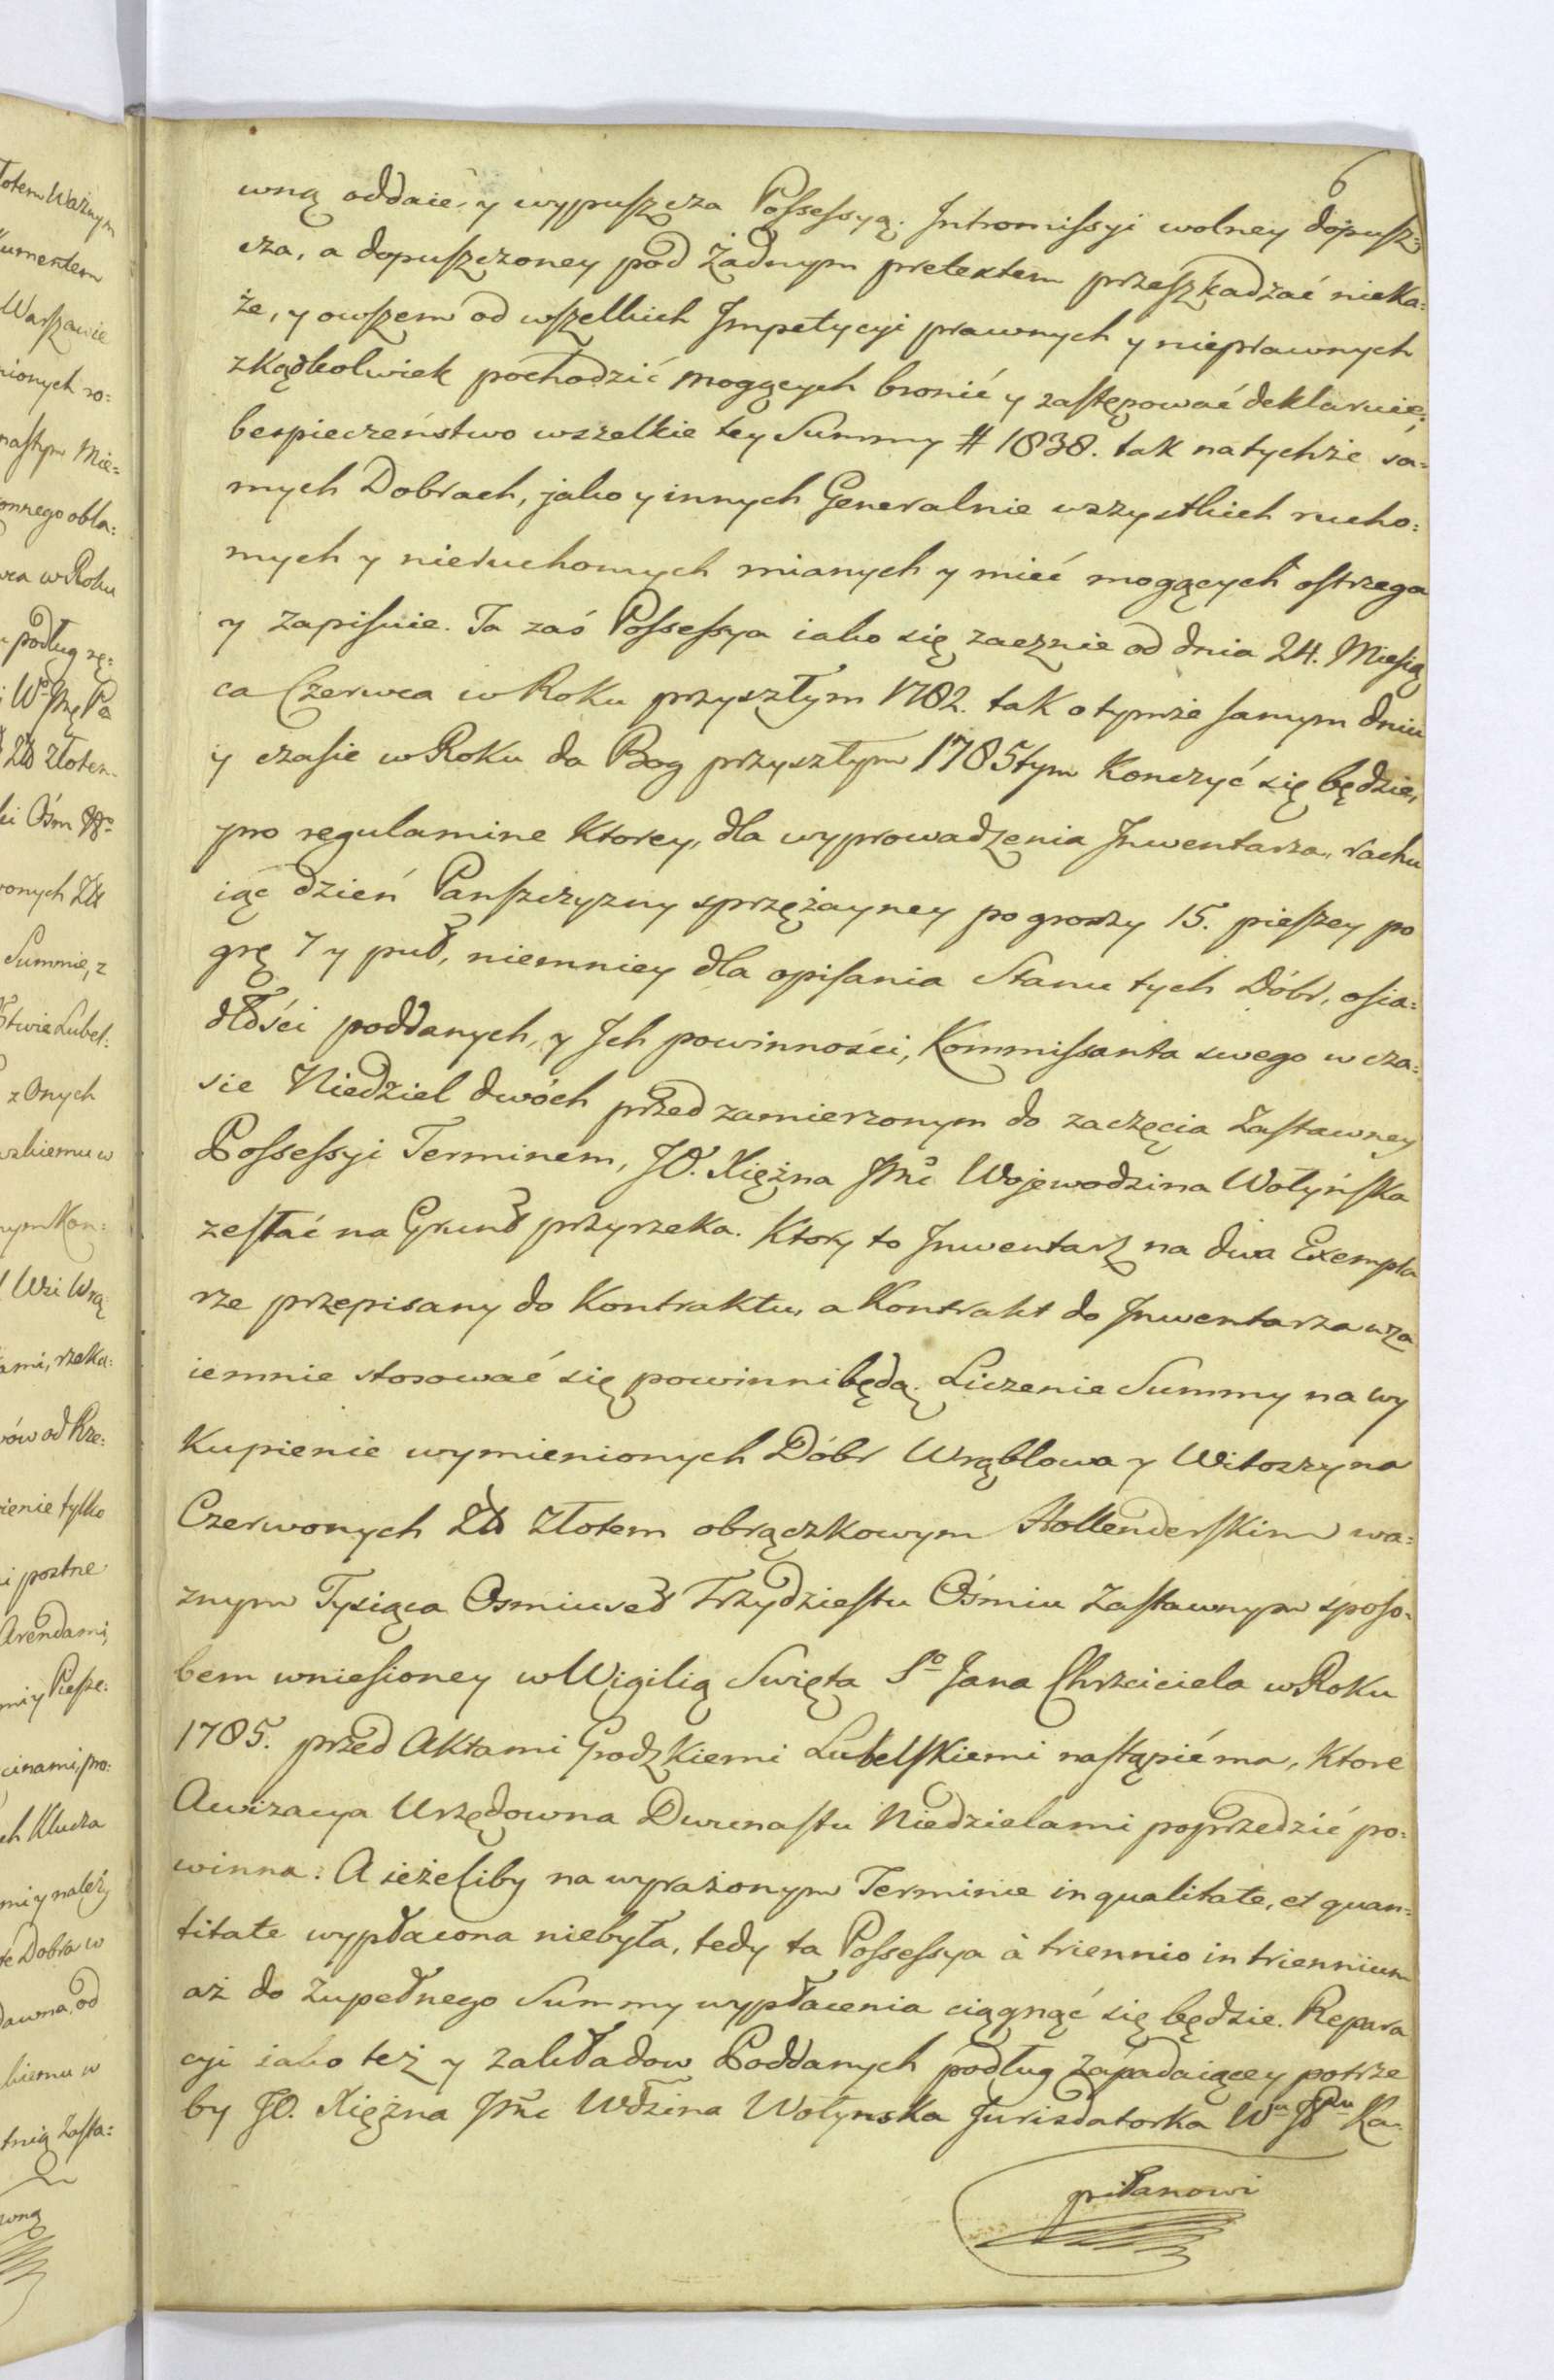 6
wną oddaie, y wypuszcza Possessyą. Intromissyi wolney dopusz=
cza, a dopuszczoney pod żadnym pretextem przeszkadzać nieka=
że, y owszem od wszelkich Impetycyi prawnych y nieprawnych
zkądkolwiek pochodzić mogących bronić y zastępować deklaruie;
bespieczeństwo wszelkie tey Summy # 1838. tak na tychże sa=
mych Dobrach, jako y innych Generalnie wszystkich rucho=
mych y nieruchomych mianych y mieć mogących ostrzega
y zapisuie. Ta zaś Possessya iako się zacznie od dnia 24. Miesią
ca Czerwca w Roku przyszłym 1782. tak o tymże samym dniu
y czasie w Roku da Bog przyszłym 1785tym Konczyć się będzie,
pro regulamine Ktorey, dla wyprowadzenia Inwentarza, rachu
iąc dzień Panszczyzny sprzężayney po groszy 15. pieszey po
grę 7 y puł, niemniey dla opisania Stanu tych Dóbr, osia=
dłości poddanych, y Ich powinności, Kommissanta swego w cza=
sie Niedziel dwóch przed zamierzonym do zaczęcia Zastawney
Possessyi Terminem, JO. Xiężna Jmć Wojewodzina Wołyńska
zesłać na Grunt przyrzeka. Ktory to Inwentarz na dwa Exempla
rze przepisany do Kontraktu, a Kontrakt do Inwentarza wza
iemnie stosować się powinni będą. Liczenie Summy na wy
Kupienie wymienionych Dóbr Wrąblowa y Witoszyna
Czerwonych Złł Złotem obrączkowym Hollenderskim wa=
żnym Tysiąca Osmiuset Trzydziestu Ośmiu Zastawnym sposo=
bem wniesioney w Wigilią Swięta So Jana Chrzciciela w Roku
1785. przed Aktami Grodzkiemi Lubelskiemi nastąpić ma, Ktore
Awizacya Urzędowna Dwunastu Niedzielami poprzedzić po=
winna: A ieżeliby na wyrażonym Terminie in qualitate, et quan=
titate wypłacona niebyła, tedy ta Possessya à triennio in triennium
aż do Zupełnego Summy wypłacenia ciągnąć się będzie. Repara
cyi iako też y zakładow Poddanych podług zapadaiącey potrze
by JO. Xiężna Jmć Wdzina Wołynska Jurisdatorka Wu JPnu Ka=
pitanowi